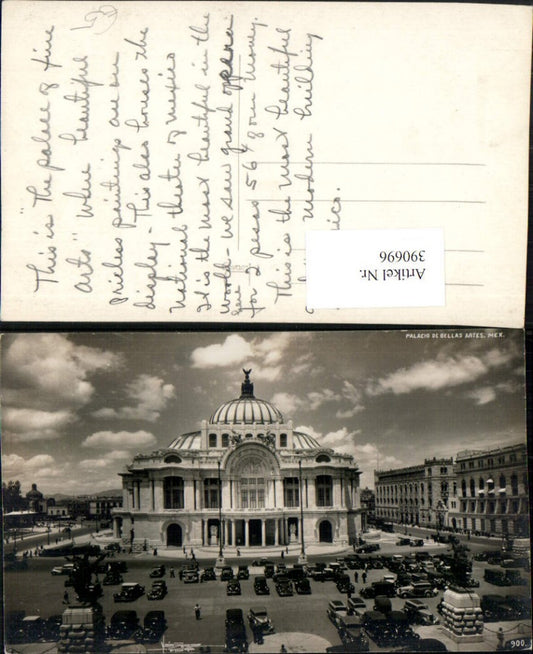 This is "The palace of fine
arts" where beautiful
priceless paintings are on
display - This also houses the
National theatre of Mexico
It is the most beautiful in the
world - we saw grand opera
here
for 2 pesos 56¢ your money.
This is the most beautiful
modern building
Artikel Nr.
390696
PALACIO DE BELLAS ARTES. MEX.
900.